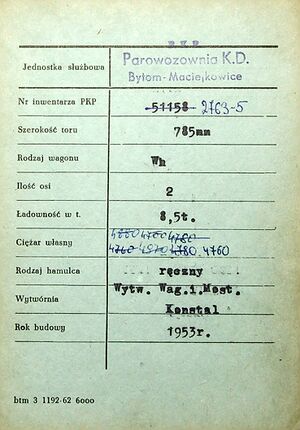 P K P
Jednostka służbowa Parowozownia K.D.
Bytom-Maciejkowice
Nr inwentarza PKP 51158 2763-5
Szerokość toru 785mm
Rodzaj wagonu Wh
Ilość osi 2
Ładowność w t. 8,5t.
Ciężar własny 4880 4700 4780
4760 4970 4780, 4760
Rodzaj hamulca ręczny
Wytwórnia Wytw. Wag.i.Most.
Konstal
Rok budowy 1953r.
btm 3 1192-62 6000